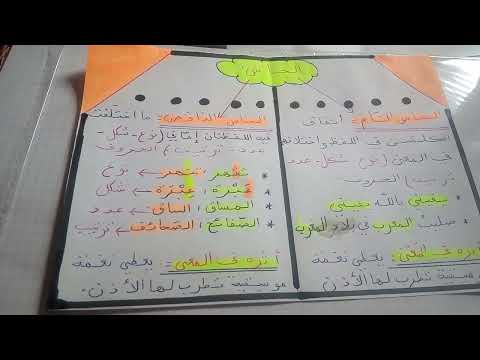 الجناس
الجناس التام: اتفاق
الكلمتين في اللفظ واختلافهما
في المعنى (نوع - شكل - عدد
ترتيب) الحروف
يقيني بالله يقيني
صليت المغرب في بلاد المغرب
أثره في المعنى: يعطي نغمة
موسيقية تطرب لها الأذن
الجناس الناقص: ما اختلفت
فيه اللفظتان إما في (نوع - شكل -
عدد - ترتيب) الحروف
تقهر، تنهر ← نوع
عَبرة، عِبرة ← شكل
المساق، الساق ← عدد
الصفائح، الصحائف ← ترتيب
أثره في المعنى: يعطي نغمة
موسيقية تطرب لها الأذن.